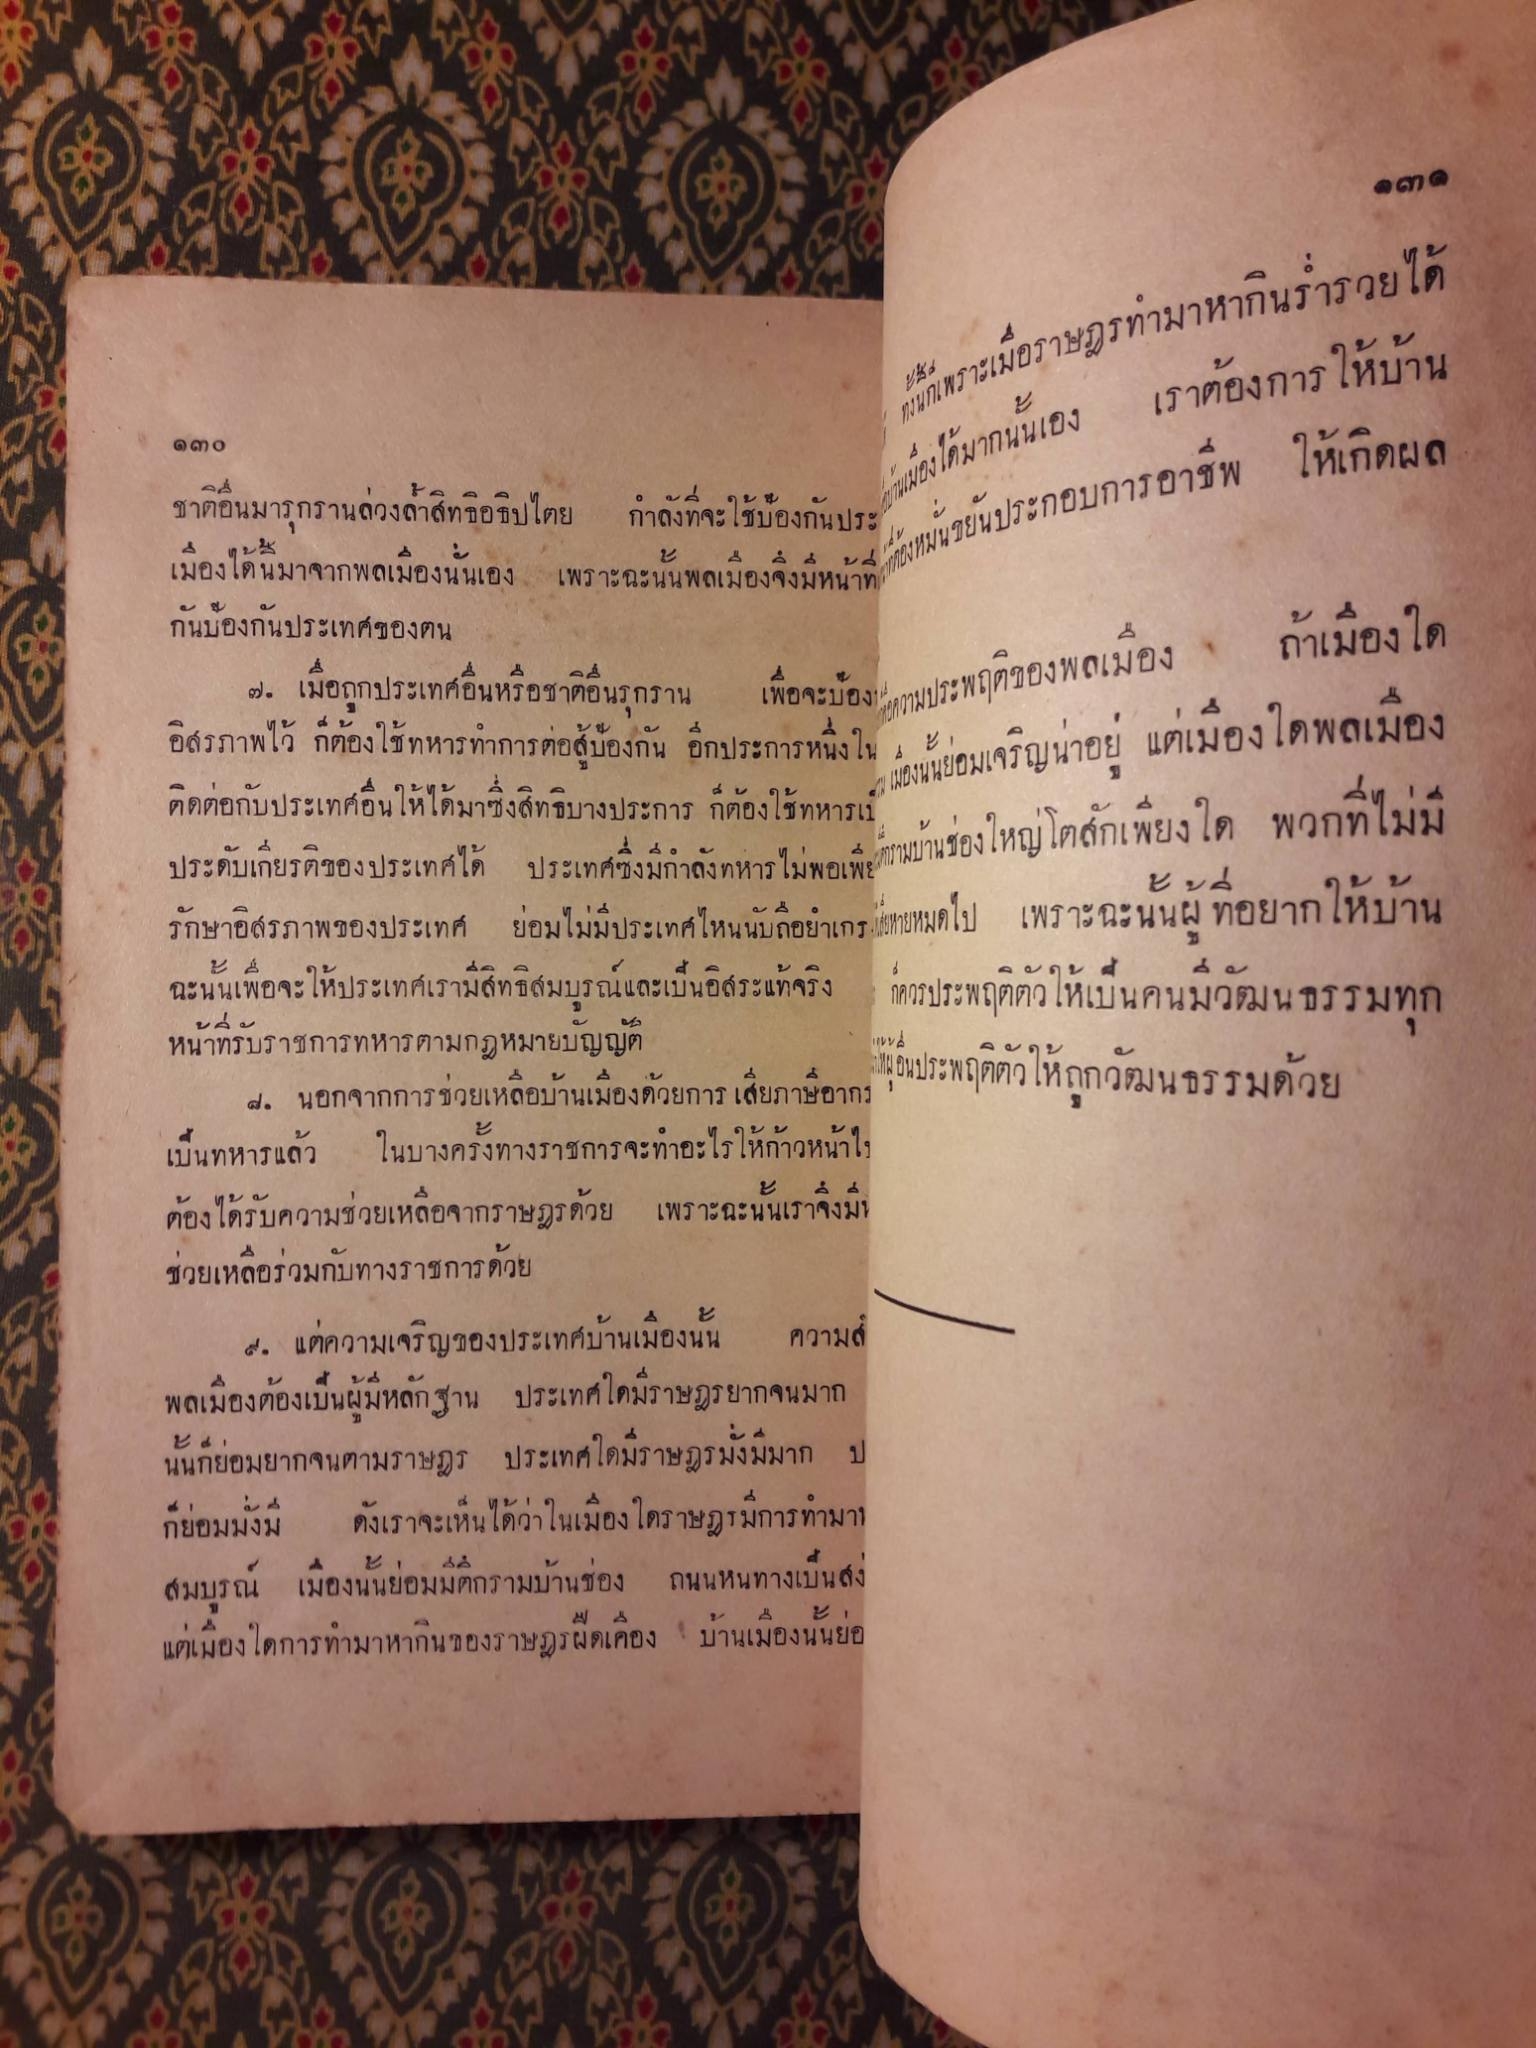 ๑๓๐
ชาติอื่นมารุกรานล่วงล้ำสิทธิอธิปไตย กำลังที่จะใช้ป้องกันประ
เมืองได้นี้มาจากพลเมืองนั่นเอง เพราะฉะนั้นพลเมืองจึงมีหน้าที่
กันป้องกันประเทศของตน
๗. เมื่อถูกประเทศอื่นหรือชาติอื่นรุกราน เพื่อจะป้อง
อิสรภาพไว้ ก็ต้องใช้ทหารทำการต่อสู้ป้องกัน อีกประการหนึ่งใน
ติดต่อกับประเทศอื่นให้ได้มาซึ่งสิทธิบางประการ ก็ต้องใช้ทหารเป็
ประดับเกียรติของประเทศได้ ประเทศซึ่งมีกำลังทหารไม่พอเพีย
รักษาอิสรภาพของประเทศ ย่อมไม่มีประเทศไหนนับถือยำเกร
ฉะนั้นเพื่อจะให้ประเทศเรามีสิทธิสมบูรณ์และเป็นอิสระแท้จริง
หน้าที่รับราชการทหารตามกฎหมายบัญญัติ
๘. นอกจากการช่วยเหลือบ้านเมืองด้วยการเสียภาษีอากร
เป็นทหารแล้ว ในบางครั้งทางราชการจะทำอะไรให้ก้าวหน้าไ
ต้องได้รับความช่วยเหลือจากราษฎรด้วย เพราะฉะนั้นเราจึงมี
ช่วยเหลือร่วมกับทางราชการด้วย
๙. แต่ความเจริญของประเทศบ้านเมืองนั้น ความสำ
พลเมืองต้องเป็นผู้มีหลักฐาน ประเทศใดมีราษฎรยากจนมาก
นั้นก็ย่อมยากจนตามราษฎร ประเทศใดมีราษฎรมั่งมีมาก ป
ก็ย่อมมั่งมี ดังเราจะเห็นได้ว่าในเมืองใดราษฎรมีการทำมาห
สมบูรณ์ เมืองนั้นย่อมมีตึกรามบ้านช่อง ถนนหนทางเป็นสง่
แต่เมืองใดการทำมาหากินของราษฎรฝืดเคือง บ้านเมืองนั้นย่อ
๑๓๑
ทั้งนี้ก็เพราะเมื่อราษฎรทำมาหากินร่ำรวยได้
บ้านเมืองได้มากนั้นเอง เราต้องการให้บ้าน
ก็ต้องหมั่นขยันประกอบการอาชีพ ให้เกิดผล
คือความประพฤติของพลเมือง ถ้าเมืองใด
เมืองนั้นย่อมเจริญน่าอยู่ แต่เมืองใดพลเมือง
ตึกรามบ้านช่องใหญ่โตสักเพียงใด พวกที่ไม่มี
เสียหายหมดไป เพราะฉะนั้นผู้ที่อยากให้บ้าน
ก็ควรประพฤติตัวให้เป็นคนมีวัฒนธรรมทุก
ให้ผู้อื่นประพฤติตัวให้ถูกวัฒนธรรมด้วย